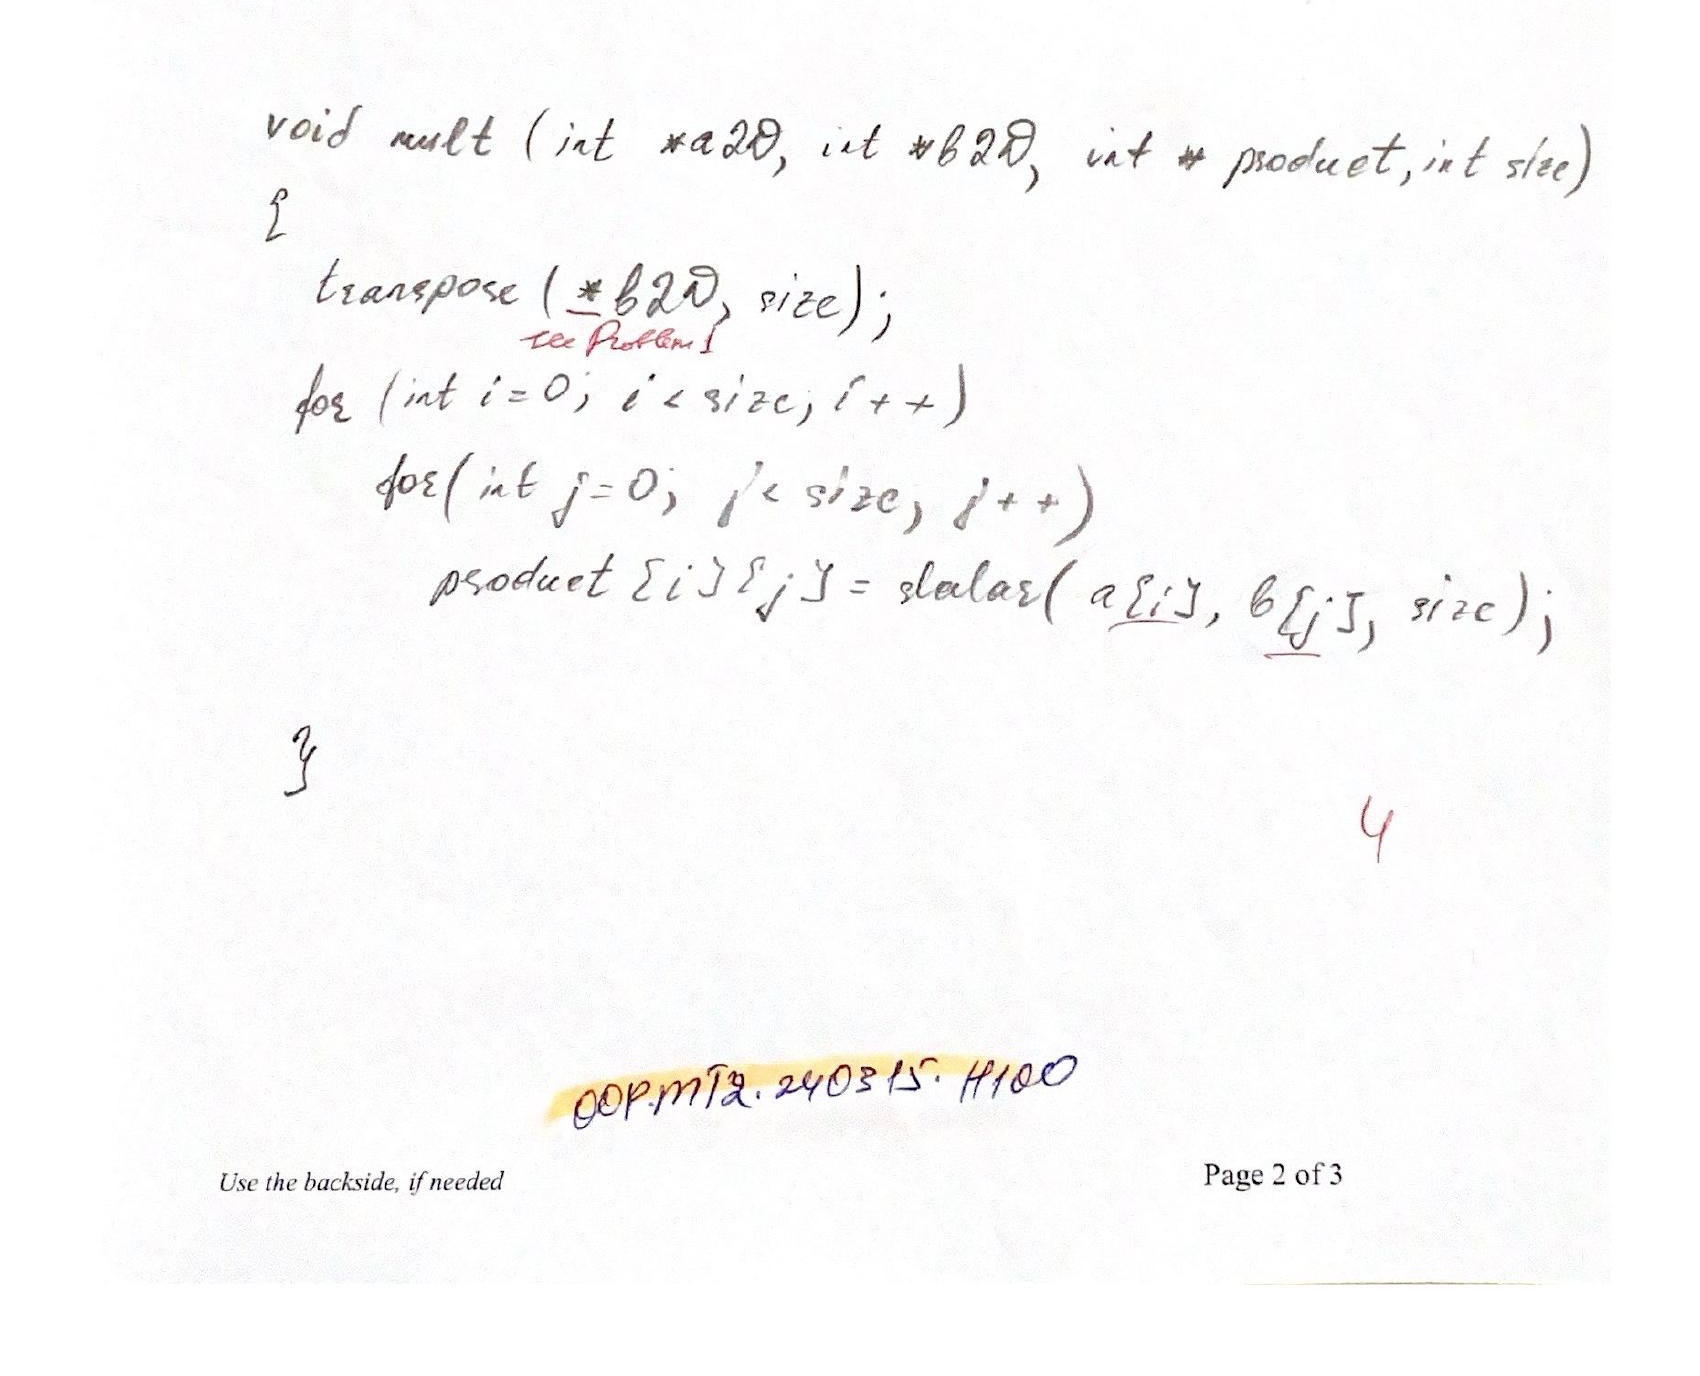 void mult (int *a2D, int *b2D, int * product, int size)
{
transpose (*b2D, size);
see Problem 1
for (int i=0; i < size; i++)
for (int j=0; j < size; j++)
product [i][j] = skalar( a[i], b[j], size);
}
4
OOP.MT2.240315.H100
Use the backside, if needed
Page 2 of 3